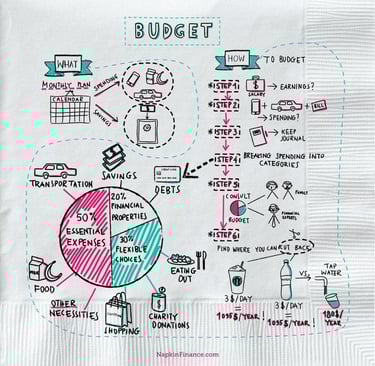 BUDGET
WHAT
MONTHLY PLAN
CALENDAR
SPENDING
SAVINGS
HOW TO BUDGET
STEP 1:
SALARY
EARNINGS?
STEP 2:
BILL
SPENDING?
STEP 3:
KEEP
JOURNAL
STEP 4:
BREAKING SPENDING INTO
CATEGORIES
STEP 5:
BUDGET
FAMILY
FINANCIAL
STEP 6:
FIND WHERE YOU CAN CUT BACK
3$/DAY
1095$/YEAR!
VS
3$/DAY
1095$/YEAR!
TAP
WATER
180$/YEAR
TRANSPORTATION
SAVINGS
DEBTS
50%
ESSENTIAL
EXPENSES
20%
FINANCIAL
PROPERTIES
30%
FLEXIBLE
CHOICES
EATING
OUT
FOOD
OTHER
NECESSITIES
SHOPPING
CHARITY
DONATIONS
NapkinFinance.com